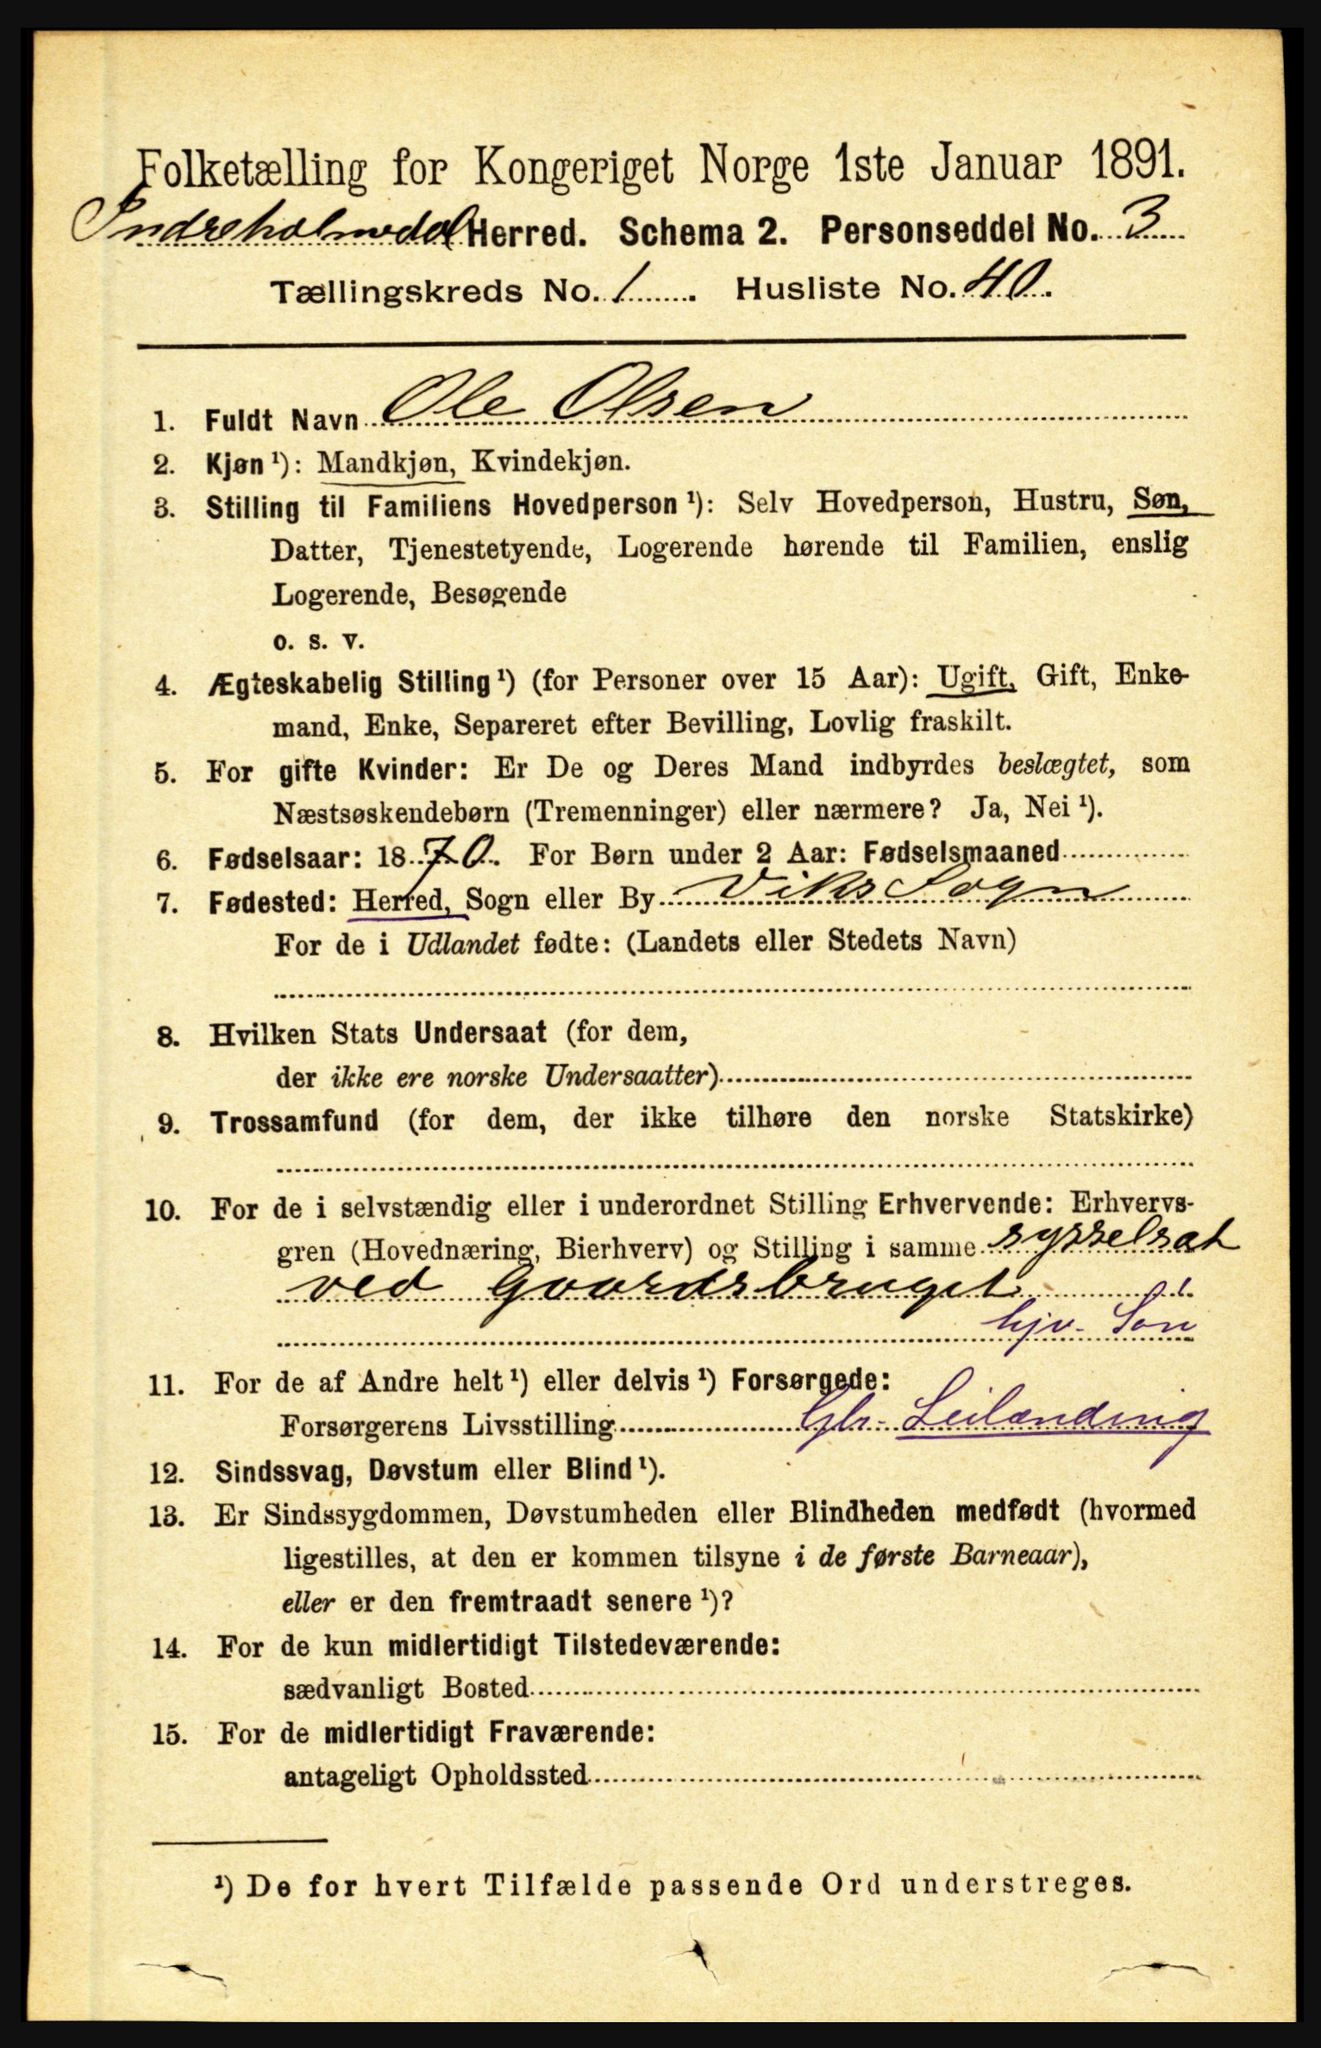 Folketælling for Kongeriget Norge 1ste Januar 1891.
Indreholmedal Herred. Schema 2. Personseddel No. 3
Tællingskreds No. 1. Husliste No. 40.
1. Fuldt Navn Ole Olsen
2. Kjøn ¹): Mandkjøn, Kvindekjøn.
3. Stilling til Familiens Hovedperson ¹): Selv Hovedperson, Hustru, Søn,
Datter, Tjenestetyende, Logerende hørende til Familien, enslig
Logerende, Besøgende
o. s. v.
4. Ægteskabelig Stilling ¹) (for Personer over 15 Aar): Ugift, Gift, Enke-
mand, Enke, Separeret efter Bevilling, Lovlig fraskilt.
5. For gifte Kvinder: Er De og Deres Mand indbyrdes beslægtet, som
Næstsøskendebørn (Tremenninger) eller nærmere? Ja, Nei ¹).
6. Fødselsaar: 1870. For Børn under 2 Aar: Fødselsmaaned
7. Fødested: Herred, Sogn eller By Viks Sogn
For de i Udlandet fødte: (Landets eller Stedets Navn)
8. Hvilken Stats Undersaat (for dem,
der ikke ere norske Undersaatter)
9. Trossamfund (for dem, der ikke tilhøre den norske Statskirke)
10. For de i selvstændig eller i underordnet Stilling Erhvervende: Erhvervs-
gren (Hovednæring, Bierhverv) og Stilling i samme sysselsat
ved Gaardsbruget
hjv. Søn
11. For de af Andre helt ¹) eller delvis ¹) Forsørgede:
Forsørgerens Livsstilling Gbr. Leilænding
12. Sindssvag, Døvstum eller Blind ¹).
13. Er Sindssygdommen, Døvstumheden eller Blindheden medfødt (hvormed
ligestilles, at den er kommen tilsyne i de første Barneaar),
eller er den fremtraadt senere ¹)?
14. For de kun midlertidigt Tilstedeværende:
sædvanligt Bosted
15. For de midlertidigt Fraværende:
antageligt Opholdssted
¹) De for hvert Tilfælde passende Ord understreges.